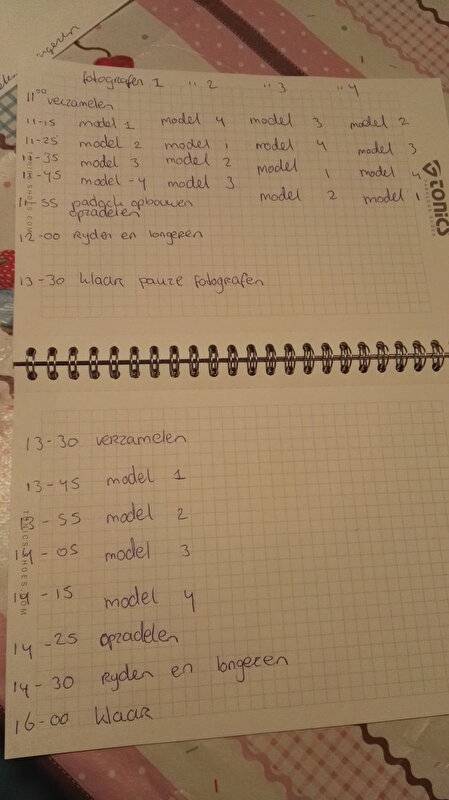 fotografen 1 " 2 " 3 " 4
11 00 verzamelen
11-15 model 1 model 4 model 3 model 2
11-25 model 2 model 1 model 4 model 3
11-35 model 3 model 2 model 1 model 4
11-45 model -4 model 3 model 2 model 1
11-55 padock opbouwen
opzadelen
12-00 Ryden en longeren
13-30 klaar pauze fotografen
tonic
13-30 verzamelen
13-45 model 1
13-55 model 2
14-05 model 3
14-15 model 4
14-25 opzadelen
14-30 Ryden en longeren
16-00 klaar
TONICSHOES.COM